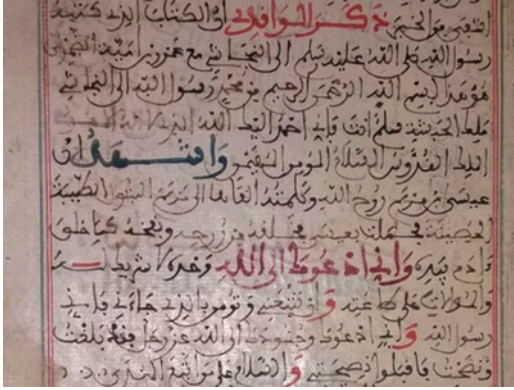 من الخبر ذكر الواقدي ان الكتاب الذي كتبه
رسول الله صلى الله عليه وسلم الى النجاشي مع عمرو بن امية الضمري
هو هذا بسم الله الرحمن الرحيم من محمد رسول الله الى النجاشي
ملك الحبشة سلم انت فاني احمد اليك الله الذي لا اله الا هو
الملك القدوس السلام المومن المهيمن واشهد ان
عيسى بن مريم روح الله وكلمته القاها الى مريم البتول الطيبة
الحصينة فحملت بعيسى فخلقه من روحه ونفخه كما خلق
ءادم بيده واني ادعوك الى الله وحده لا شريك له
والموالات على طاعته وان تتبعني وتومن بالذي جاءني فاني
رسول الله واني ادعوك وجنودك الى الله عز وجل وقد بلغت
ونصحت فاقبلوا نصيحتي والسلام على من اتبع الهدى